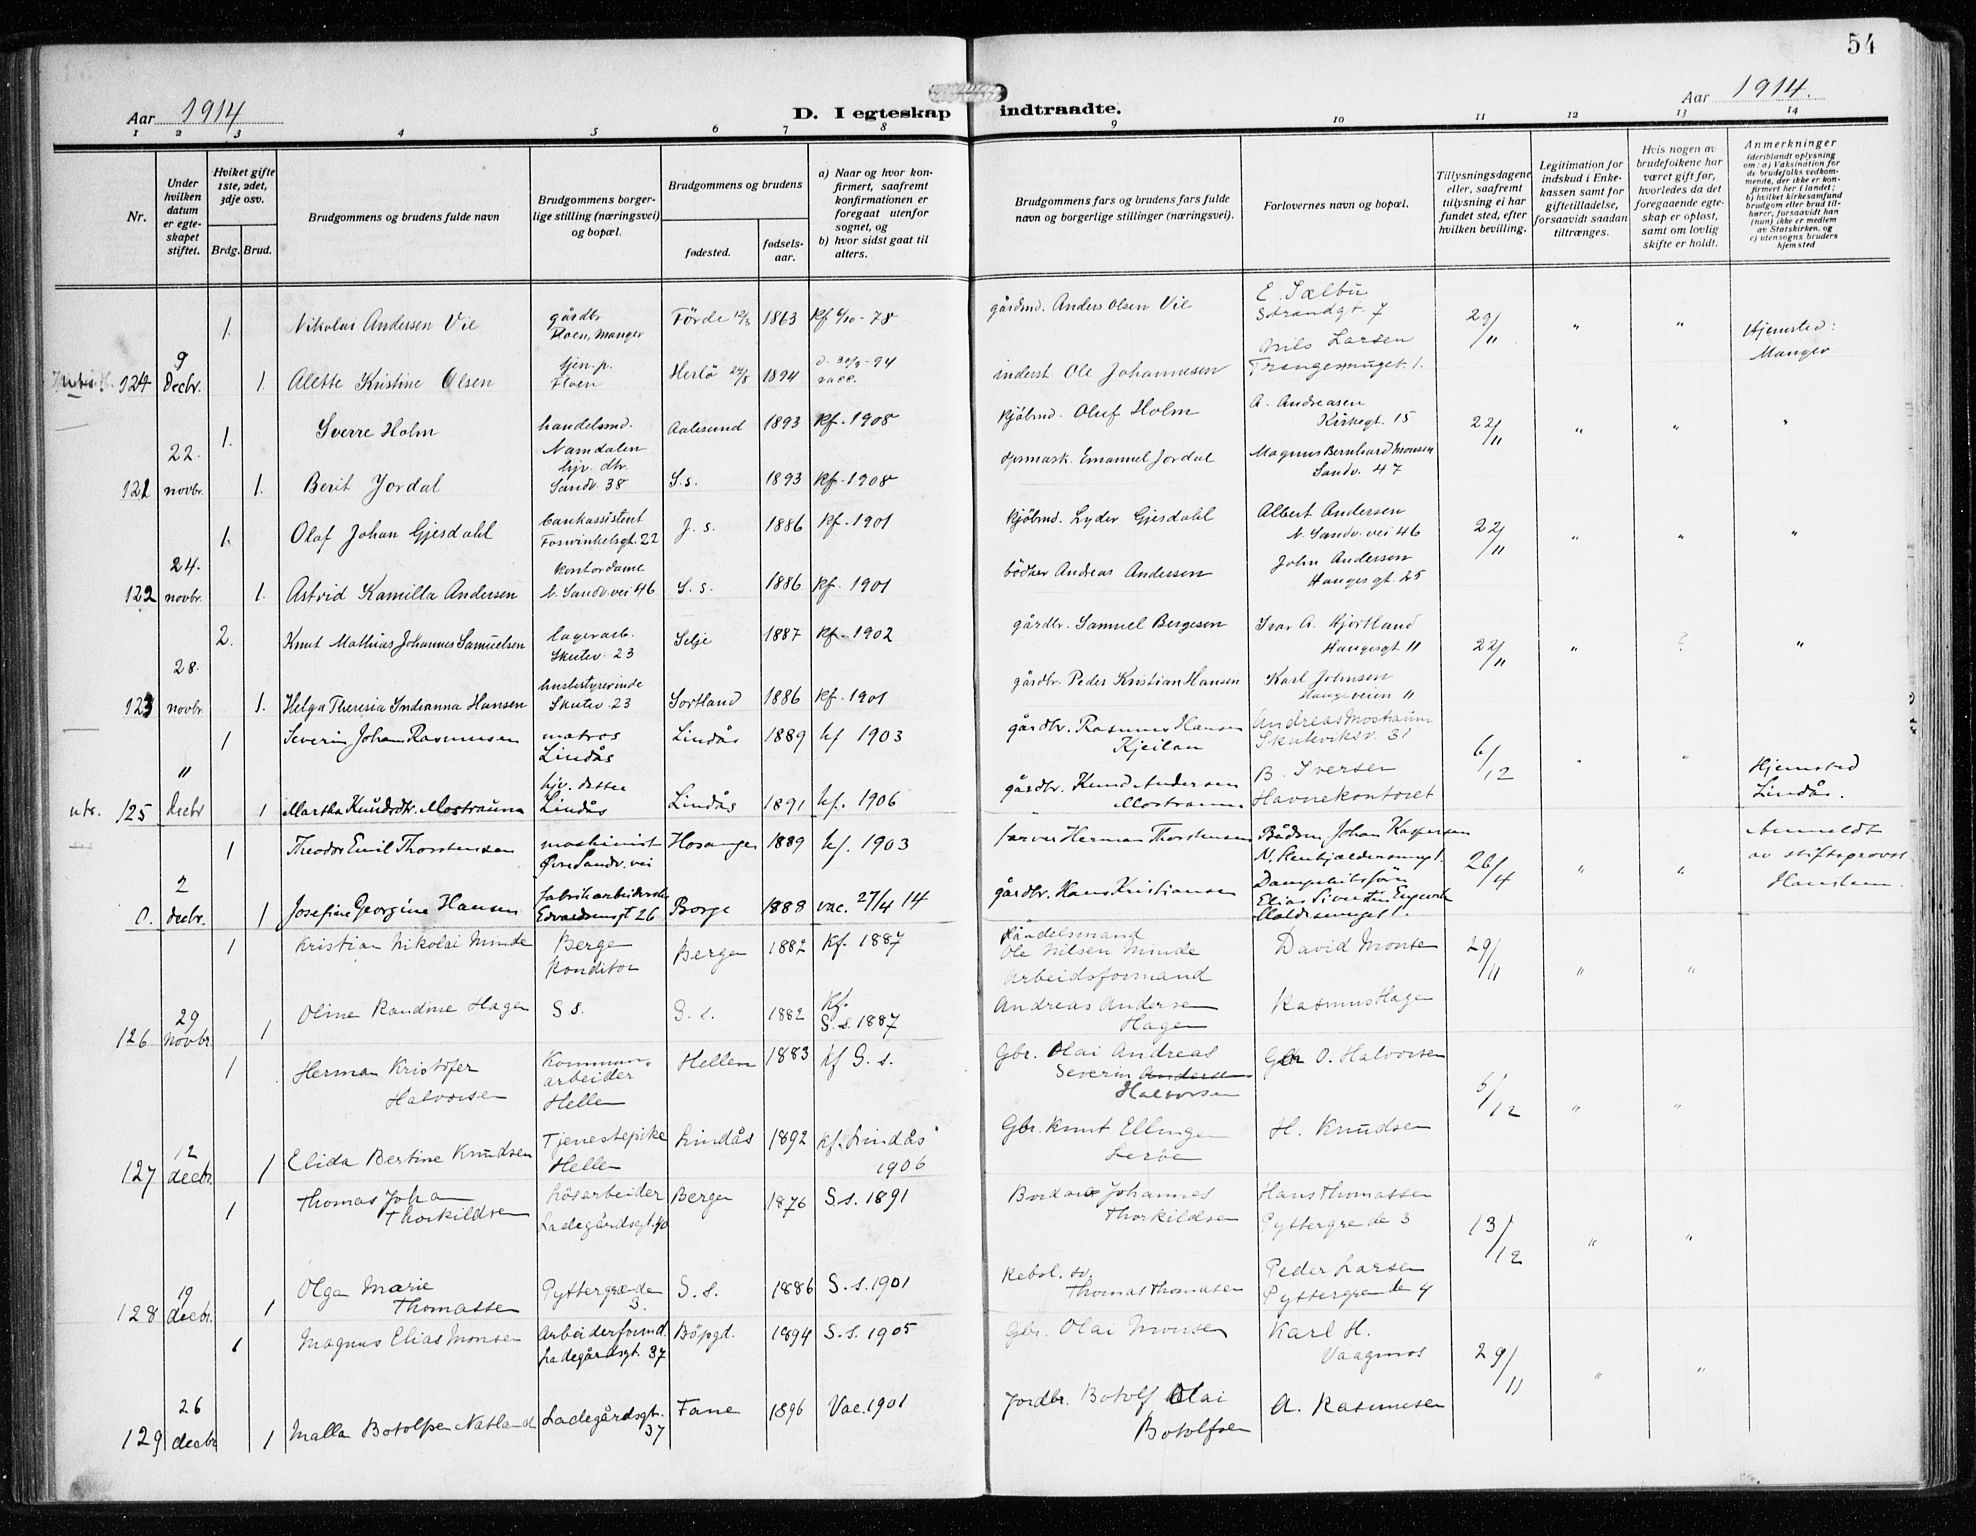 54
Aar 1914
D. I egteskap indtraadte.
Aar 1914.
1 2 3 4 5 6 7 8 9 10 11 12 13 14
Nr.
Under hvilken datum er egteskapet stiftet.
Hviket gifte 1ste, 2det, 3dje osv.
Brdg. Brud.
Brudgommens og brudens fulde navn
Brudgommens borgerlige stilling (næringsvei) og bopæl.
Brudgommens og brudens
fødested.
fødselsaar.
a) Naar og hvor konfirmert, saafremt konfirmationen er foregaat utenfor sognet, og
b) hvor sidst gaat til alters.
Brudgommens fars og brudens fars fulde navn og borgerlige stillinger (næringsvei).
Forlovernes navn og bopæl.
Tillysningsdagene eller, saafremt tillysning ei har fundet sted, efter hvilken bevilling.
Legitimation for indskud i Enkekassen samt for giftetilladelse, forsaavidt saadan tiltrænges.
Hvis nogen av brudefolkene har været gift før, hvorledes da det foregaaende egteskap er opløst, samt om lovlig skifte er holdt.
Anmerkninger
(deriblandt oplysning om: a) Vaksination for de brudefolks vedkommende, der ikke er konfirmert her i landet; b) hvilket kirkesamfund brudgom eller brud tilhører, forsaavidt han (hun) ikke er medlem av Statskirken, og c) utensogns bruders hjemsted
1. Nikolai Andersen Vie gårdbr Floen, Manger Førde 12/3 1863 kf 6/10-78 gårdmd. Anders Olsen Vie E. Sælbu Strandgt. 7 29/11 " " Hjemsted: Manger
124 9 Decbr. 1. Alette Kristine Olsen tjen.p. Floen Herlø 24/8 1894 vacc. inderst Ole Johannesen Nils Larsen 1.
1. Sverre Holm handelsmd. Namdalen Aalesund 1893 kf. 1908 kjøbmd. Oluf Holm A. Andreasen Kirkegt. 15 22/11 " " "
121 22. novbr. 1. Berit Jordal hjv. dtr. Sandv. 38 S.s. 1893 kf. 1908 opsmask. Emanuel Jordal Magnus Bernhard Monsen Sandv. 47
1. Olaf Johan Gjesdahl bankassistent Foswinkelsgt. 22 J. s. 1886 kf. 1901 kjøbmd. Lyder Gjesdahl Albert Andersen N. Sandv. vei 46 22/11 " " "
122 24. novbr. 1. Astrid Kamilla Andersen kontordame N. Sandv. vei 46 S. s. 1886 kf. 1901 bødker Andreas Andersen John Andersen Haugesgt 25
2. Knut Mathias Johannes Samuelsen lagerarb. Skutev. 23 Selje 1887 kf. 1902 gårdbr. Samuel Bergesen Ivar A. Hjortland Haugesgt 11 22/11 " ? "
123 28. novbr. 1. Helga Theresia Indianna Hansen husbestyrerinde Skutev. 23 Sortland 1886 kf. 1901 gårdbr. Peder Kristian Hansen Karl Johnsen Haugeveien 11
1 Severin Johan Rasmussen matros Lindås Lindås 1889 kf 1903 gårdbr. Rasmus Hansen Kjeilan Andreas Mostraum Skuteviksv. 31 6/12 " " Hjemsted Lindås.
uts. 125 11 Decbr 1 Martha Knudsdtr. Mostraum hjv. datter Lindås Lindås 1891 kf. 1906 gårdbr. Knud Andersen Mostraum B. Iversen Havnekontoret
1 Theodor Emil Thorstensen maskinist Øvre Sandv. vei Hosanger 1889 kf. 1903 farver Herman Thorstensen Bådsm. Johan Kaspersen 26/4 " " Anmeldt av stiftsprovst Hansteen
0. 2 decbr. 1 Josefine Georgine Hansen fabrikarbeiderske Edvardsensgt 26 Borge 1888 vac. 27/4 14 gårdbr. Hans Kristiansen
1 Kristian Nikolai Minde Bergen Konditor Bergen 1882 Kf. 1887 Handelsmand Ole Nilsen Minde David Monsen 29/11 " "
126 29 Novbr. 1 Oline Randine Hagen S s. S. s. 1882 Kf. S. s. 1887 Arbeidsformand Andreas Andersen Hagen Rasmus Hagen
1 Herman Kristofer Halvorsen Kommunearbeider Hellen Hellen 1883 kf S. s. Gbr. Olai Andreas Severin Andersen Halvorsen O. Halvorsen 5/12 " "
127 12 decbr. 1 Elida Bertine Knudsen Tjenestepike Hellen Lindås 1892 kf. Lindås 1906 Gbr. Knut Ellingen Lerøe H. Knudsen
1 Thomas Johan Thorkildsen Løsarbeider Ladegårdsgt. 40 Bergen 1876 S. s. 1891 Johannes Thorkildsen Hans Thomassen Pyttergrenden 3 13/12 " "
128 19 decbr. 1 Olga Marie Thomassen Pyttergrenden 3. S. s. 1886 S. s. 1901 Thomas Thomasen Peder Larsen Pyttergrenden 4
1 Magnus Elias Monsen Arbeiderformd. Ladegårdsgt. 37 Böpgd. 1894 S. s. 1905 Gbr. Olai Monsen Karl H. Vaagmos 29/11 " "
129 26 decbr 1 Malla Botolfsen Natland Ladegårdsgt. 37 Fane 1896 Vac. 1901 Jordbr. Botolf Olai Botolfsen A. Rasmussen